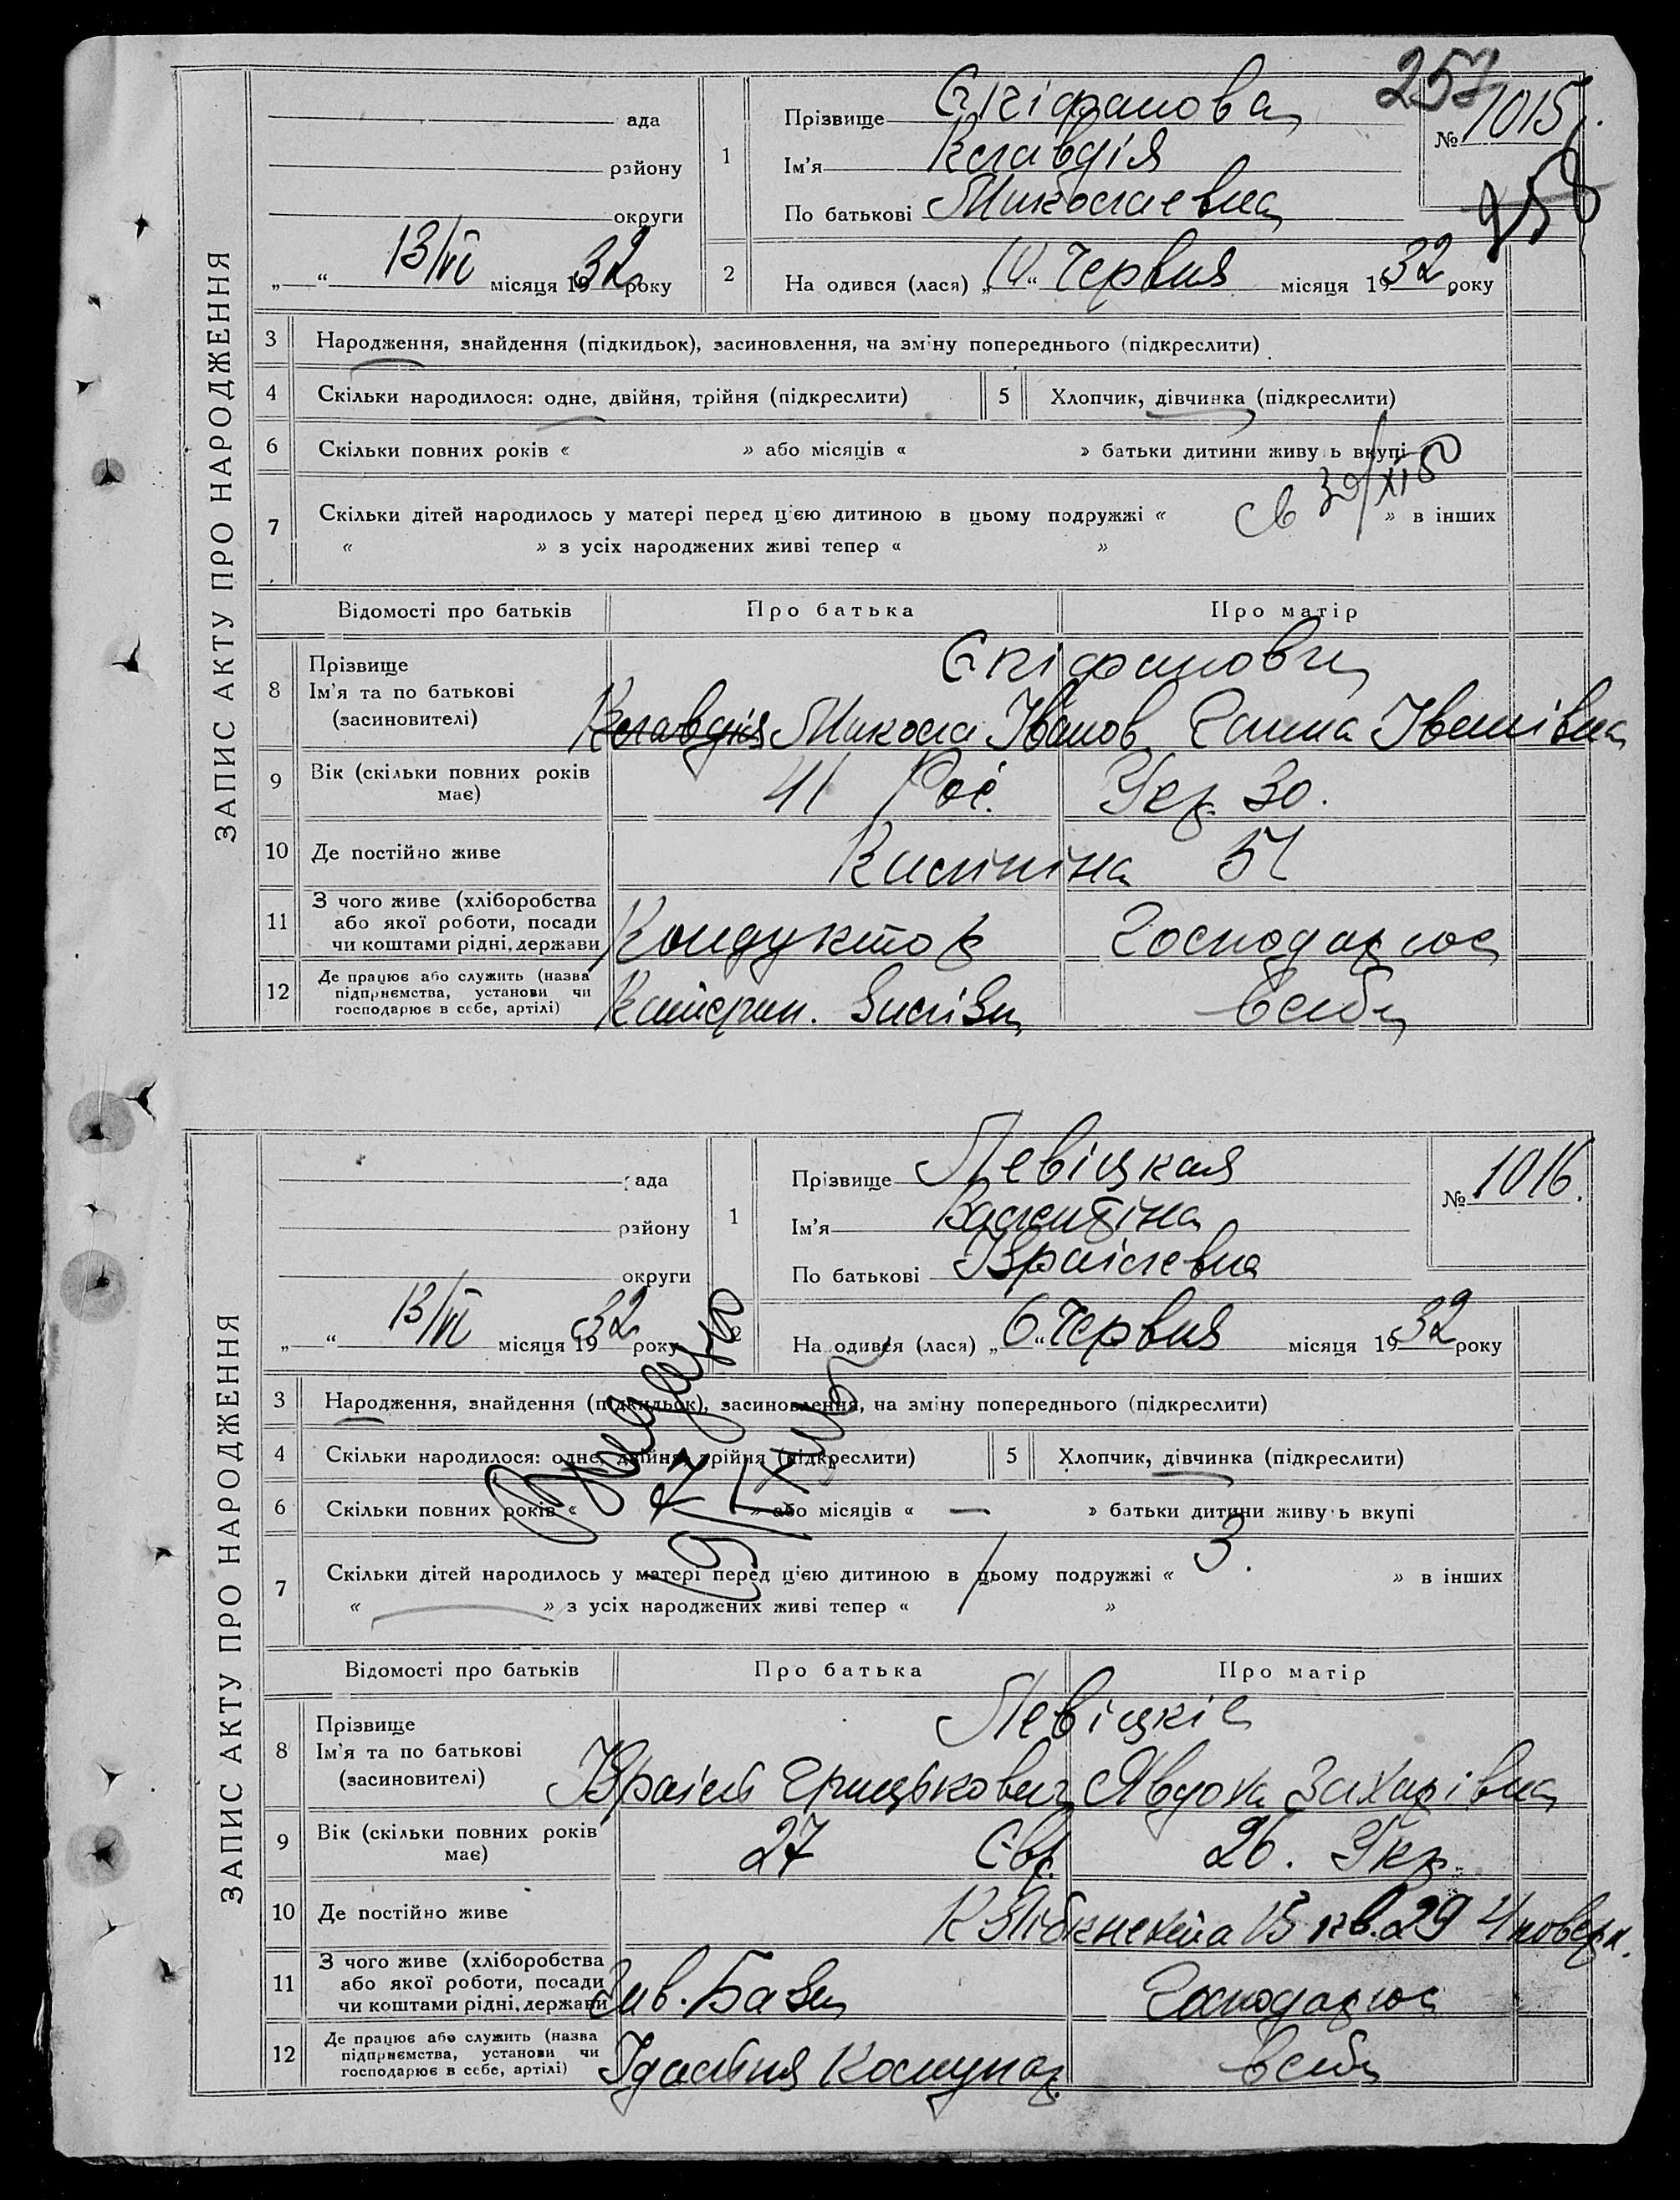 257
ЗАПИС АКТУ ПРО НАРОДЖЕННЯ
ада
району
округи
„ “ 13/VI місяця 1932 року
1
Прізвище Єпіфанова
Ім'я Клавдія
По батькові Миколаевна
№ 1015
258
2 На одився (лася) „10“ Червня місяця 1932 року
3 Народження, знайдення (підкидьок), засиновлення, на зміну попереднього (підкреслити)
4 Скільки народилося: одне, двійня, трійня (підкреслити) 5 Хлопчик, дівчинка (підкреслити)
6 Скільки повних років « » або місяців « » батьки дитини живуть вкупі
7 Скільки дітей народилось у матері перед ц'єю дитиною в цьому подружжі « » в інших
« » з усіх народжених живі тепер « »
Відомості про батьків Про батька Про матір
8 Прізвище Єпіфанови
Ім'я та по батькові
(засновителі) Клавдія Микола Іванов Ганна Іванівна
9 Вік (скільки повних років має) 41 Рос. Укр. 30.
10 Де постійно живе Калініна 51
11 З чого живе (хліборобства або якої роботи, посади чи коштами рідні, держави Кондуктор Господарює
12 Де працює або служить (назва підприємства, установи чи господарює в себе, артілі) Катерин. Залізн. в себе
ЗАПИС АКТУ ПРО НАРОДЖЕННЯ
ада
району
округи
„ “ 13/VI місяця 1932 року
1
Прізвище Левіцкая
Ім'я Валентіна
По батькові Ізраілевна
№ 1016.
2 На одився (лася) „6“ Червня місяця 1932 року
3 Народження, знайдення (підкидьок), засиновлення, на зміну попереднього (підкреслити)
4 Скільки народилося: одне, двійня, трійня (підкреслити) 5 Хлопчик, дівчинка (підкреслити)
6 Скільки повних років « » або місяців « — » батьки дитини живуть вкупі
7 Скільки дітей народилось у матері перед ц'єю дитиною в цьому подружжі « 3. » в інших
« » з усіх народжених живі тепер « »
Відомості про батьків Про батька Про матір
8 Прізвище Левіцкіе
Ім'я та по батькові
(засиновителі) Ізраіль Грицькович Явдоха Захарівна
9 Вік (скільки повних років має) 27 Євр. 26. Укр.
10 Де постійно живе К. Лібкнехта 15 кв. 29 4 поверх.
11 З чого живе (хліборобства або якої роботи, посади чи коштами рідні, держави Зав. Бази Господарює
12 Де працює або служить (назва підприємства, установи чи господарює в себе, артілі) Їдальня Комунар. в себе